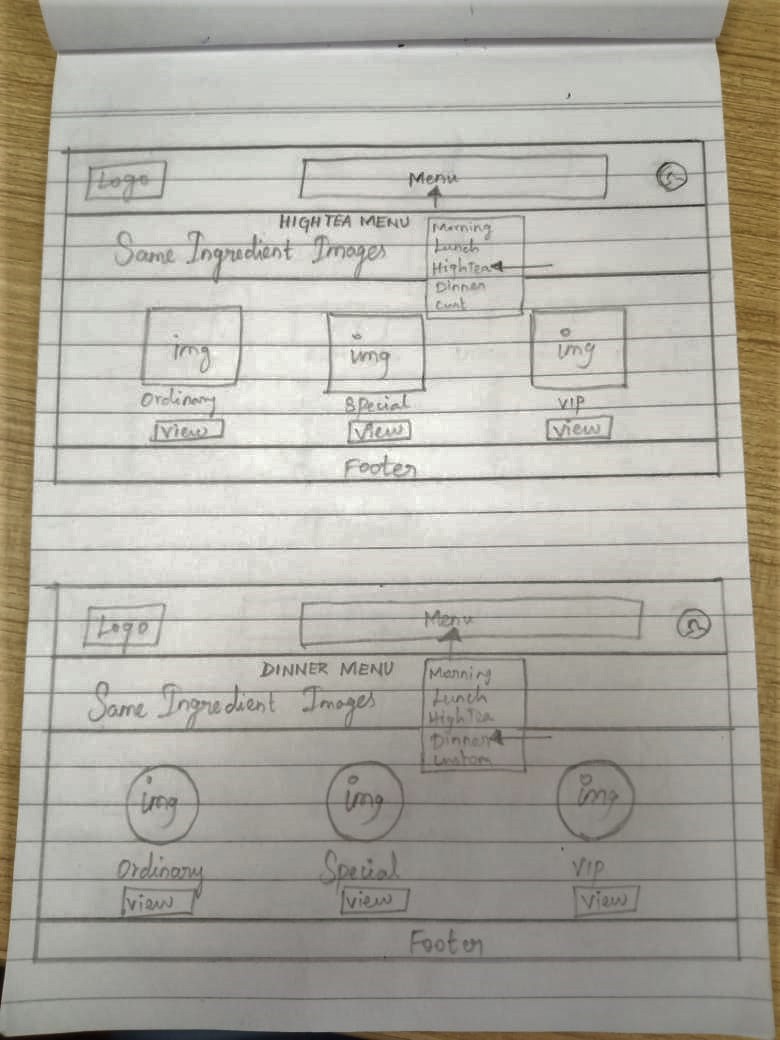 Logo
Menu
HIGHTEA MENU
Same Ingredient Images
Morning
Lunch
HighTea
Dinner
img
img
img
Ordinary
Special
VIP
View
View
View
Footer
Logo
Menu
DINNER MENU
Same Ingredient Images
Morning
Lunch
HighTea
Dinner
img
img
img
Ordinary
Special
VIP
View
View
View
Footer